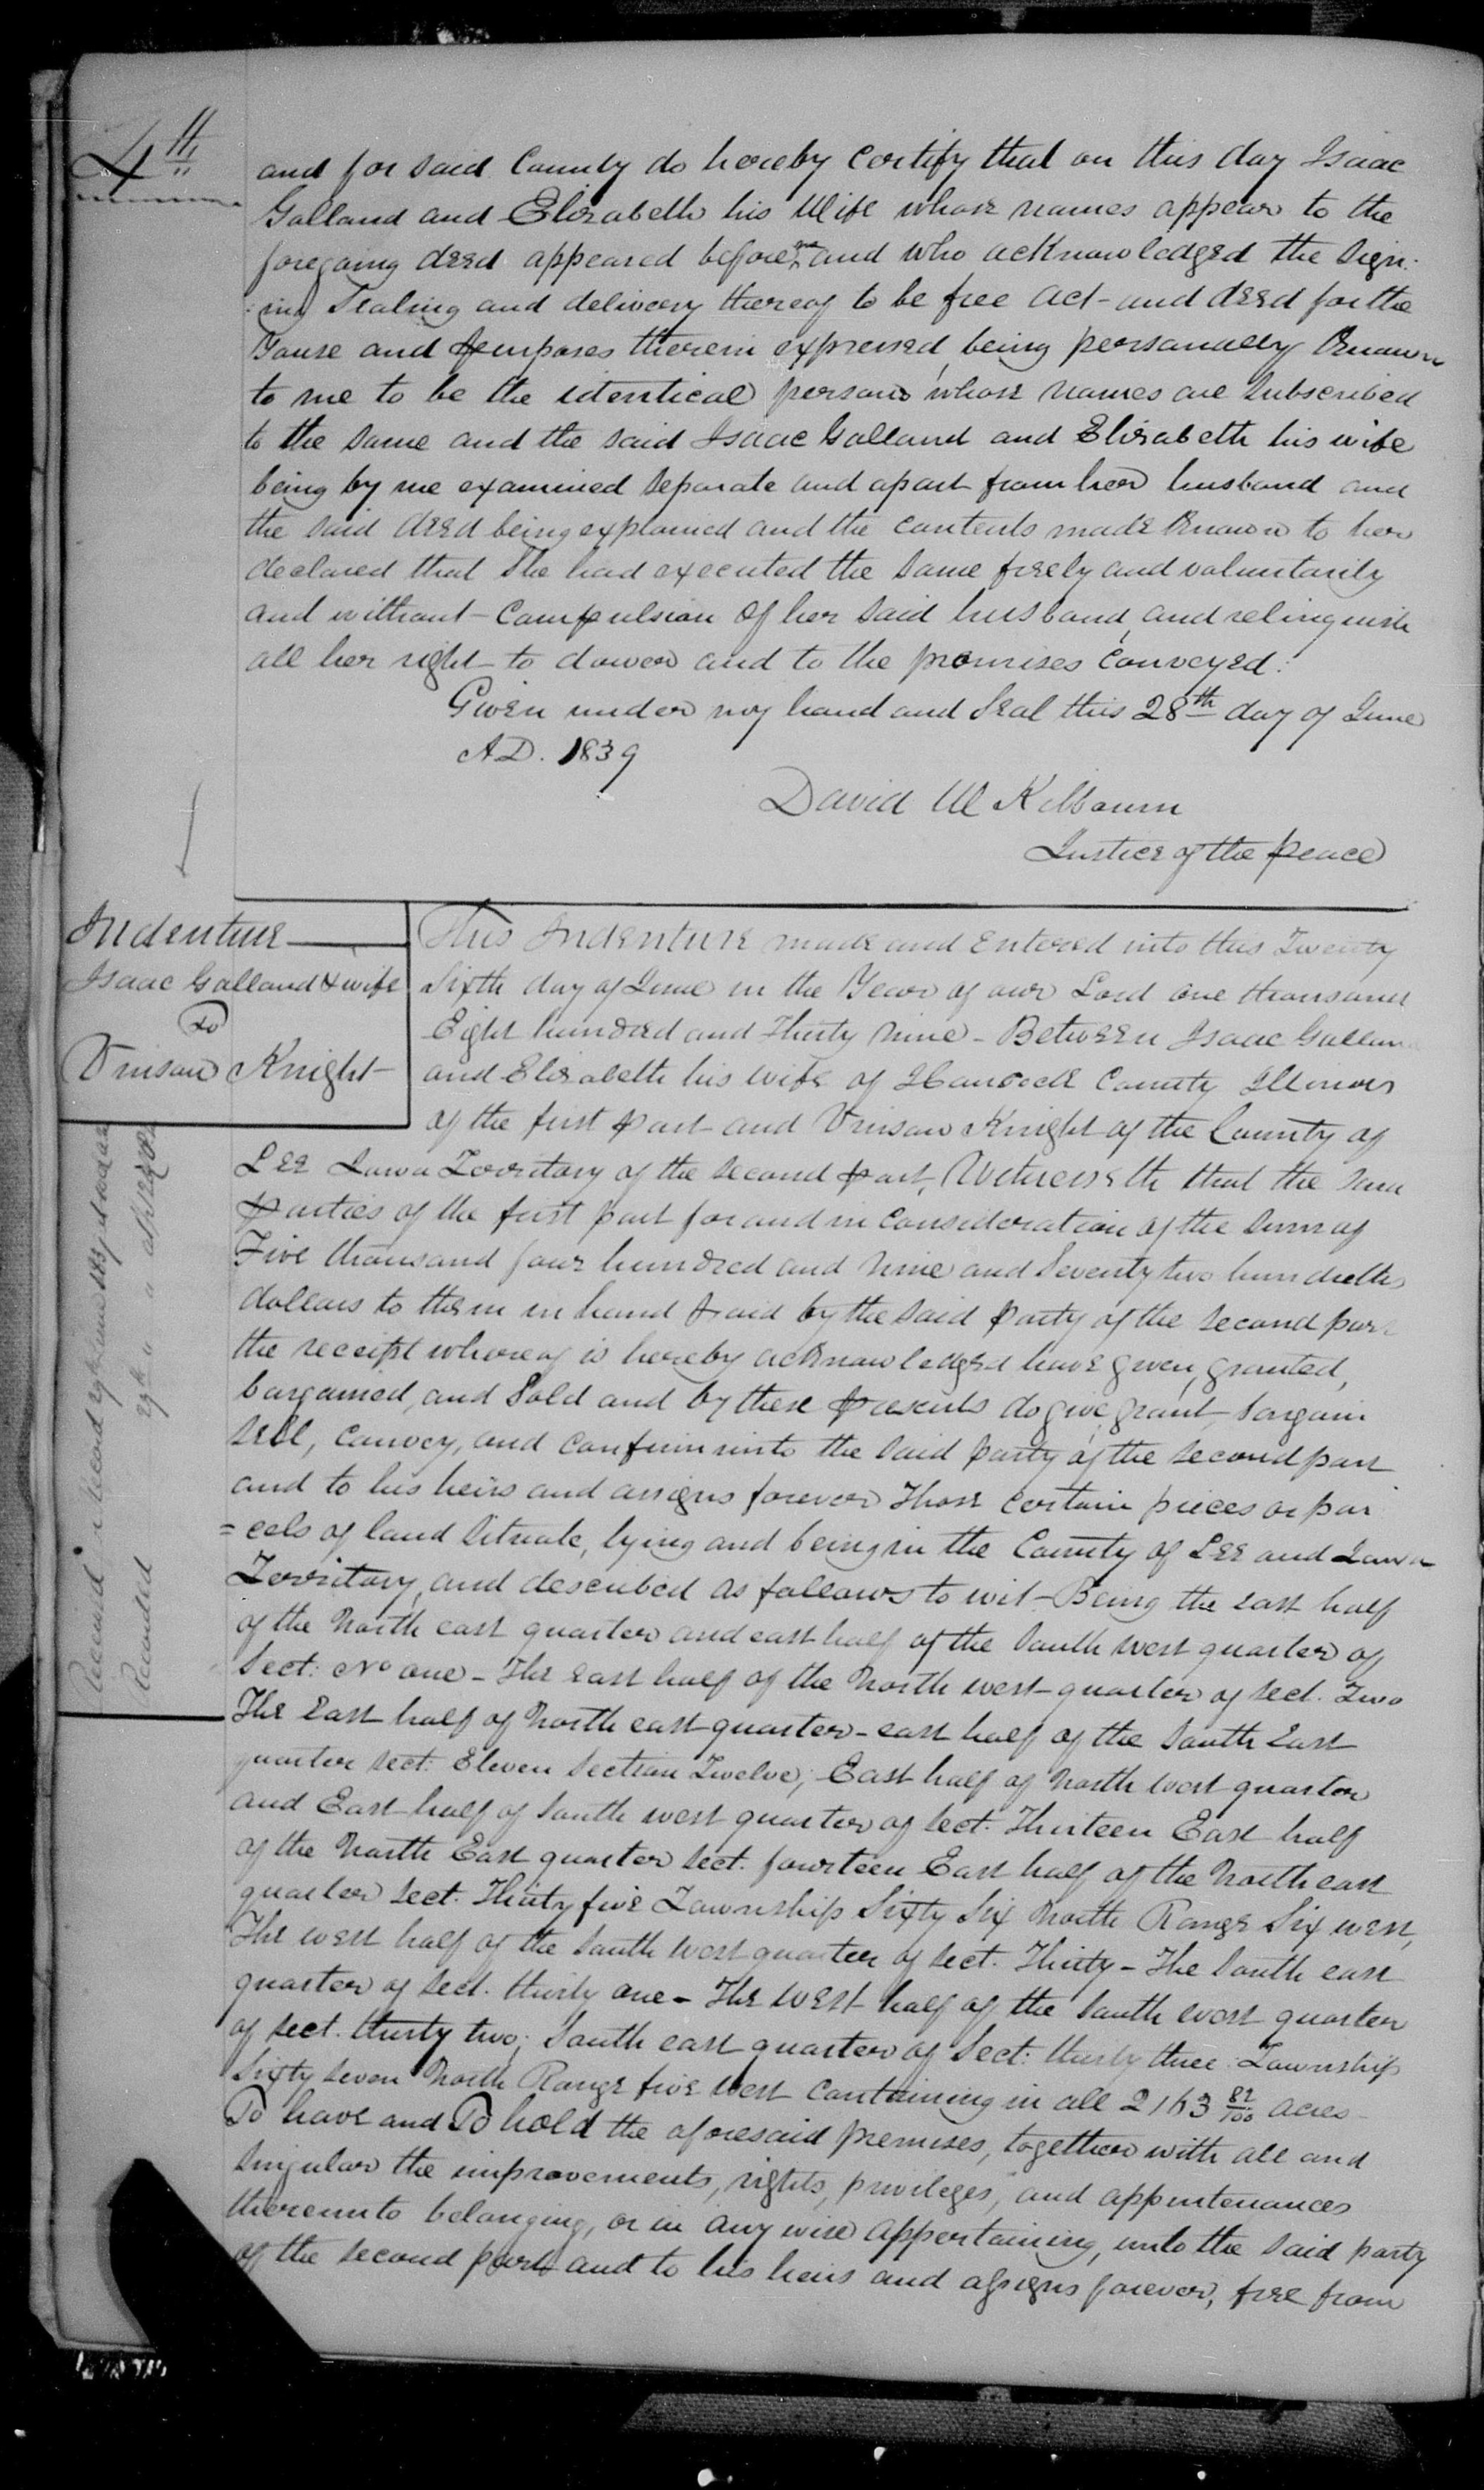 4th
and for said County do hereby certify that on this day Isaac
Galland and Elizabeth his Wife whose names appear to the
foregoing deed appeared before me and who acknowledged the Sign-
:ing Sealing and delivery thereof to be free act and deed for the
and purposes therein expressed, being personally Known
to me to be the identical persons whose names are subscribed
to the same and the said Isaac Galland and Elizabeth his wife
being by me examined separate and apart from her husband and
the said deed being explained and the contents made known to her
declared that She had executed the same freely and voluntarily
and without Compulsion of her said husband, and relinquish
all her right to dower and to the premises Conveyed.
Given under my hand and Seal this 28th day of June
A.D. 1839
David W Kilbourn
Justice of the peace
Indenture
Isaac Galland & wife
To
Vinson Knight
This Indenture made and Entered into this Twenty
Sixth day of June in the Year of our Lord one thousand
Eight hundred and Thirty Nine - Between Isaac Galland
and Elizabeth his wife of Hancock County Illinois
of the first part and Vinson Knight of the County of
Lee Iowa Territory of the second part, Witnesseth that the said
parties of the first part for and in Consideration of the sum of
Five thousand four hundred and nine and Seventy two hundredths
dollars to them in hand paid by the said party of the second part
the receipt whereof is hereby acknowledged have given, granted,
bargained, and Sold and by these presents do give, grant, bargain
sell, convey, and confirm unto the said party of the second part
and to his heirs and assigns forever Those certain pieces or par
=cels of land Situate, lying and being in the County of Lee and Iowa
Territory, and described as follows to wit - Being the east half
of the North east quarter and east half of the South west quarter of
Sect: No one - The East half of the North west quarter of sect. Two
The East half of North east quarter - east half of the South East
quarter sect: Eleven Section Twelve; East half of North west quarter
and East half of South west quarter of sect. Thirteen East half
of the North East quarter sect. fourteen East half of the North east
quarter sect. Thirty five Township Sixty Six North Range Six west,
The west half of the South west quarter of sect. Thirty - The South east
quarter of sect. thirty one - The West half of the South west quarter
of sect. thirty two; South east quarter of Sect: thirty three: Township
Sixty Seven North Range five West Containing in all 2163 82/100 acres
To have and To hold the aforesaid premises, together with all and
Singular the improvements, rights, privileges, and appurtenances
thereunto belonging, or in any wise appertaining, unto the said party
of the second part and to his heirs and assigns forever, free from
Received Record 29th June 1839
Recorded 29th " "